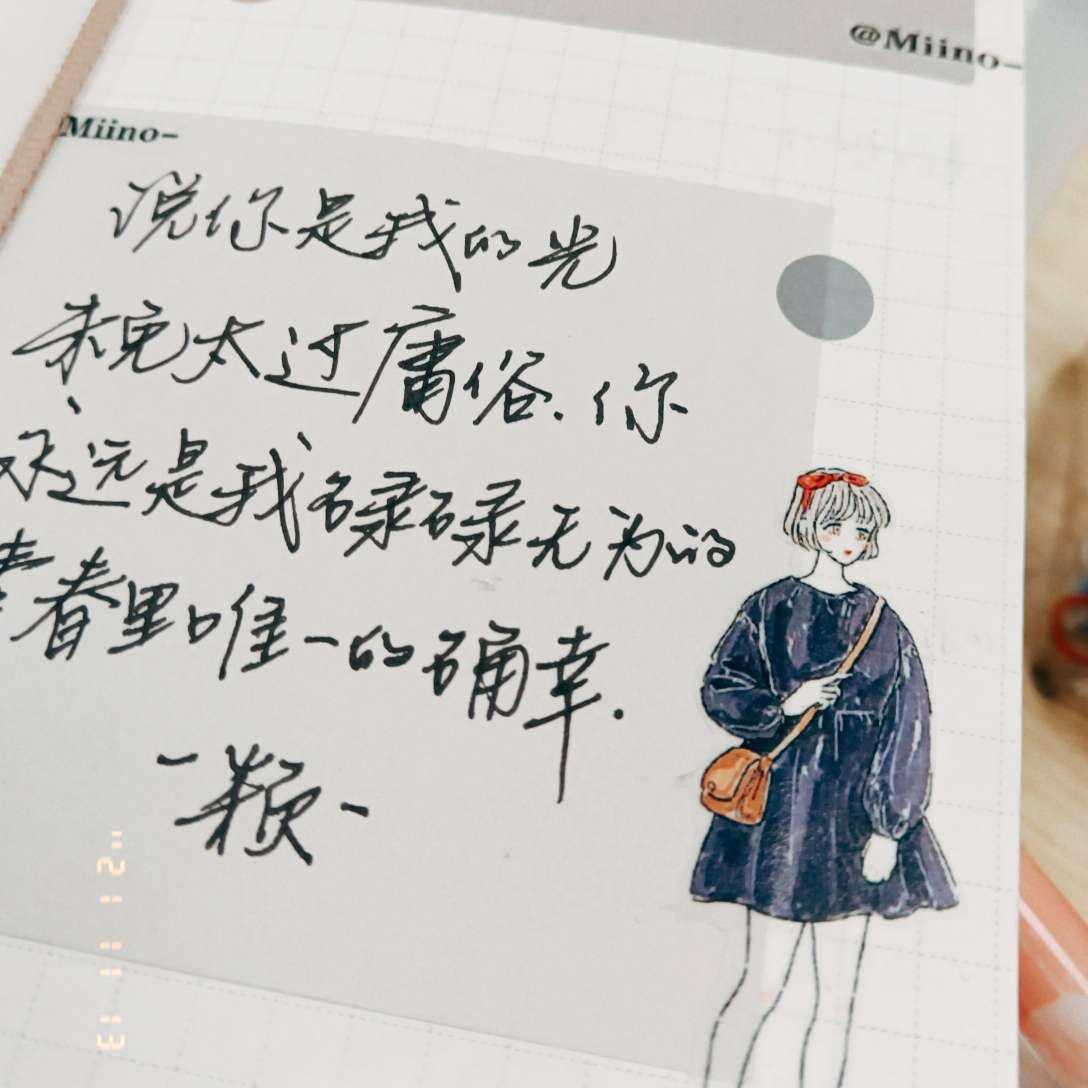 @Miino-
Miino-
说你是我的光
未免太过庸俗.你
永远是我碌碌无为的
青春里唯一的确幸.
21 11 13